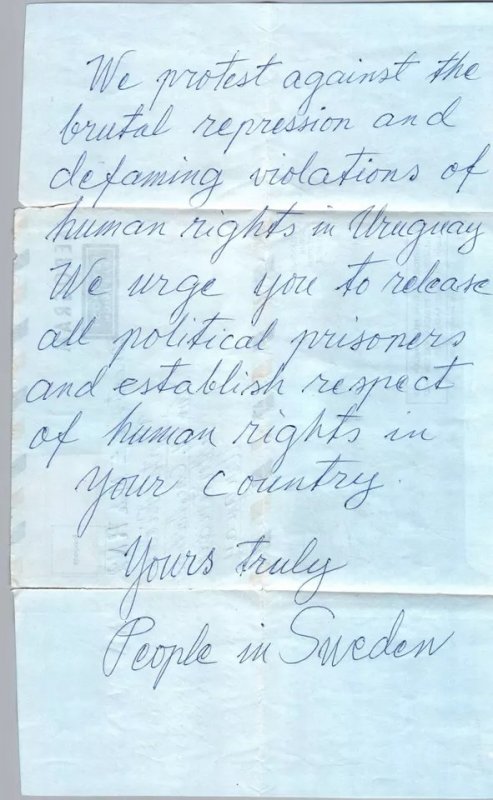 We protest against the
brutal repression and
defaming violations of
human rights in Uruguay
We urge you to release
all political prisoners
and establish respect
of human rights in
your country.
Yours truly
People in Sweden